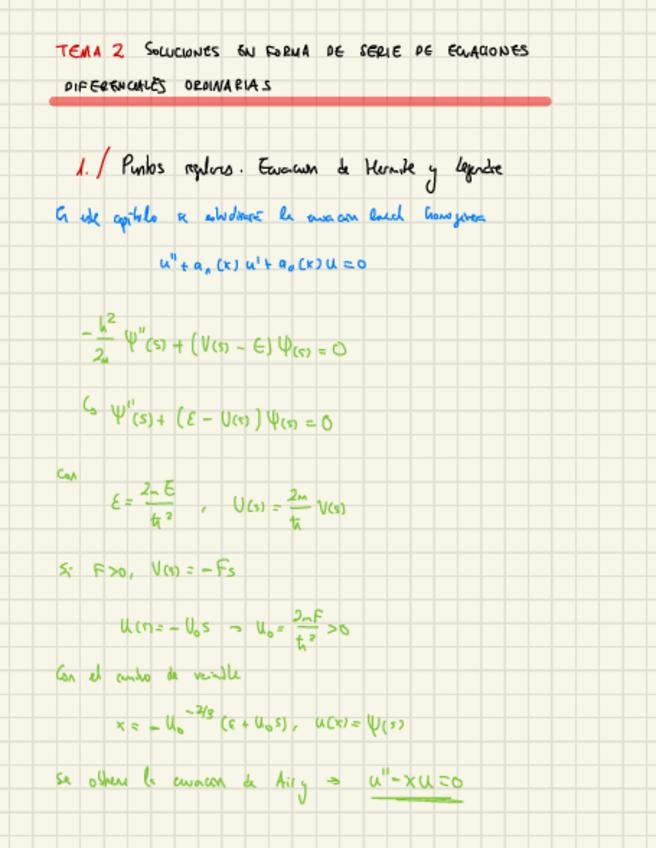 TEMA 2 SOLUCIONES EN FORMA DE SERIE DE ECUACIONES
DIFERENCIALES ORDINARIAS
1./ Puntos regulares. Ecuación de Hermite y Legendre
En este capítulo se estudiará la ecuación lineal homogénea
u'' + a₁(x) u' + a₀(x) u = 0
-ħ²/2m Ψ''(s) + (V(s) - E) Ψ(s) = 0
↳ Ψ''(s) + (ε - U(s)) Ψ(s) = 0
con
ε = 2mE/ħ² , U(s) = 2m/ħ V(s)
Si F>0, V(s) = -Fs
U(s) = -U₀s → U₀ = 2mF/ħ² > 0
Con el cambio de variable
x = -U₀^(-2/3) (ε + U₀s), u(x) = Ψ(s)
se obtiene la ecuación de Airy → u'' - xu = 0